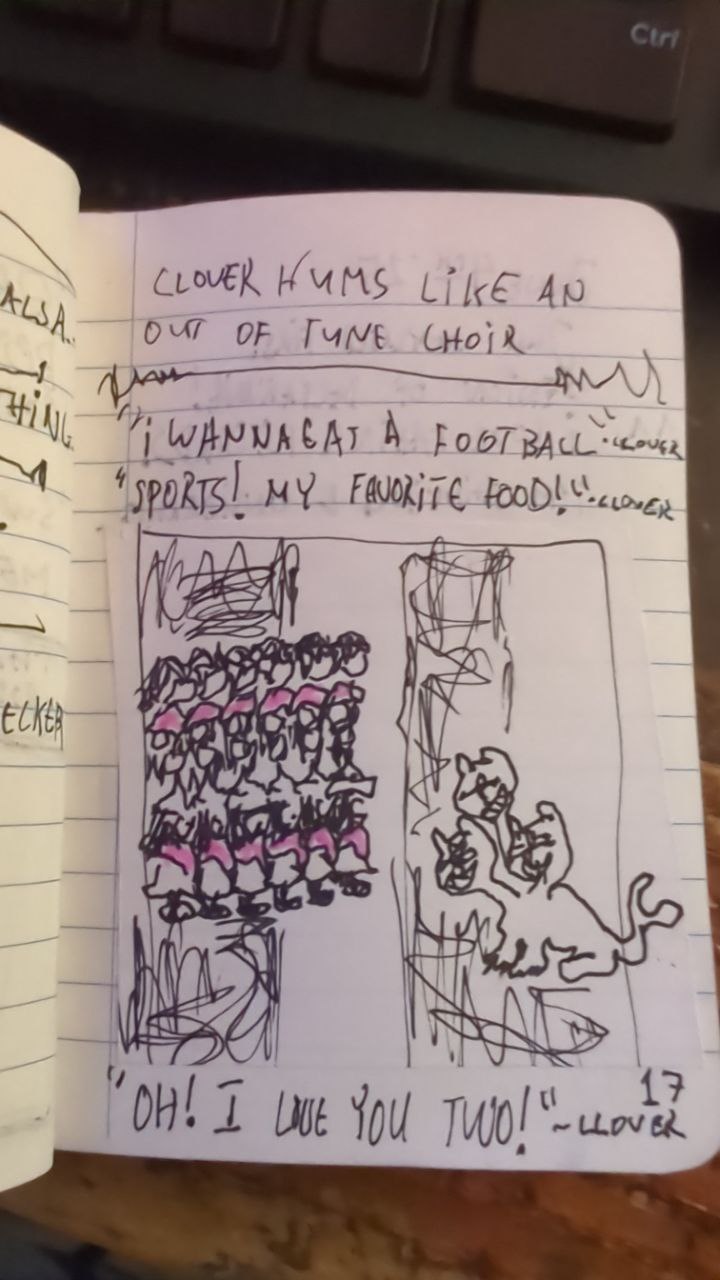 Ctrl
ALSA..
THING
ECKER
CLOVER HUMS LIKE AN
OUT OF TUNE CHOIR
"I WANNA EAT A FOOTBALL" -CLOVER
"SPORTS! MY FAVORITE FOOD!" -CLOVER
17
"OH! I LOVE YOU TWO!" ~CLOVER